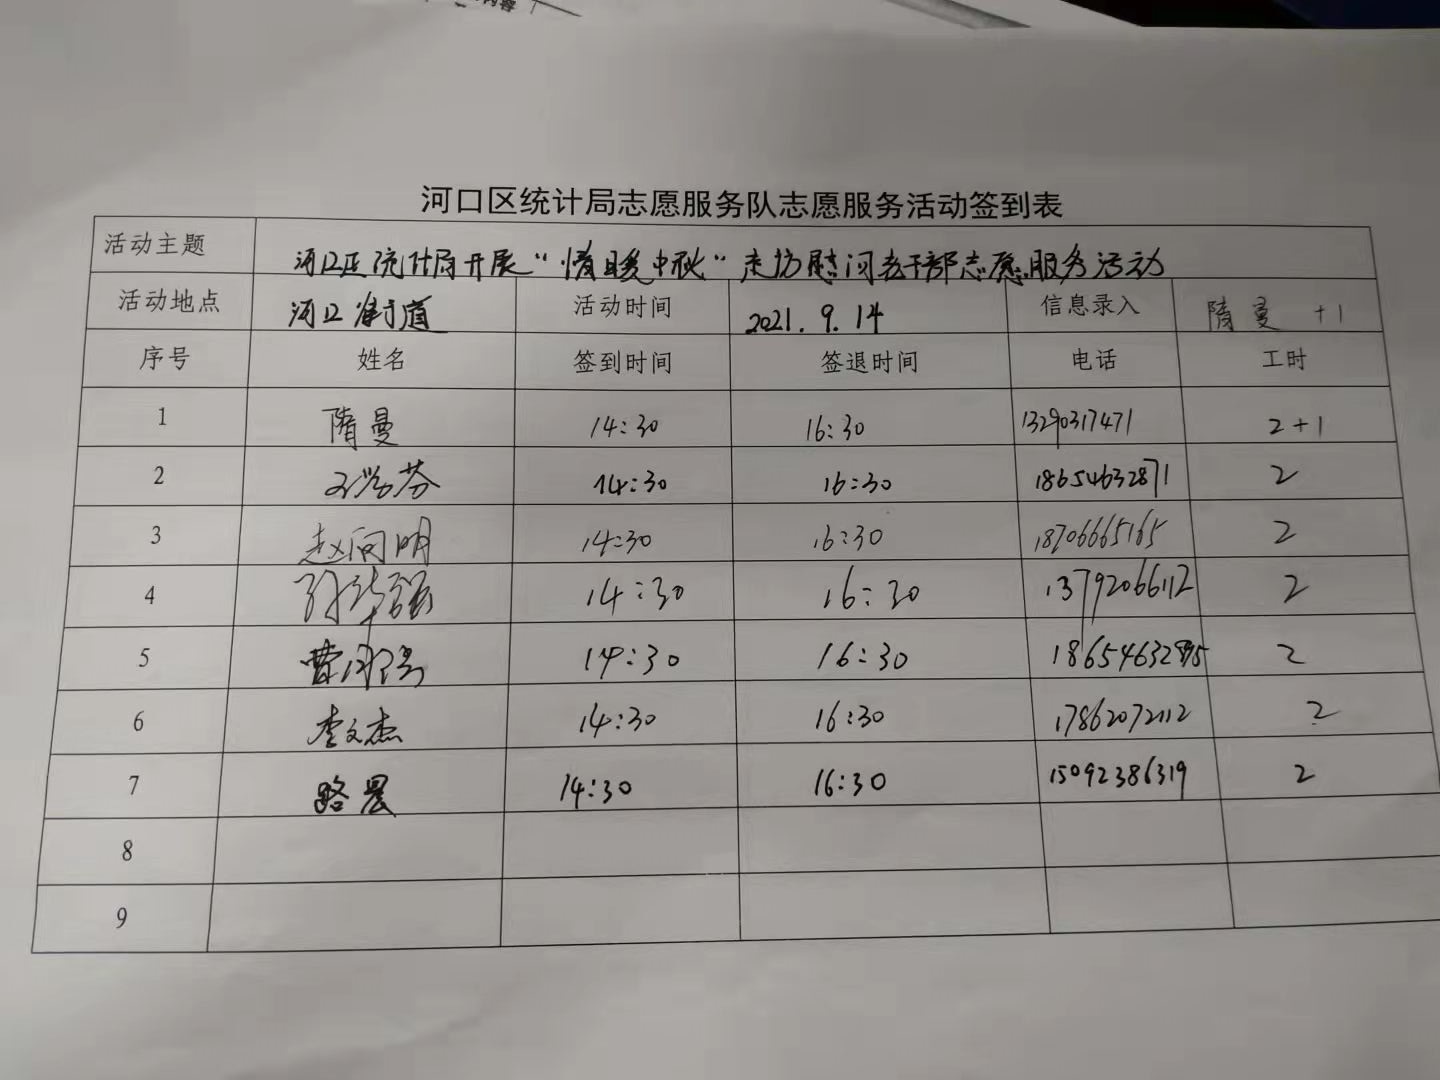 内容
河口区统计局志愿服务队志愿服务活动签到表
活动主题 河口区统计局开展“情暖中秋”走访慰问老干部志愿服务活动
活动地点 河口街道 活动时间 2021.9.14 信息录入 隋曼 +1
序号 姓名 签到时间 签退时间 电话 工时
1 隋曼 14:30 16:30 13290317471 2+1
2 14:30 16:30 18654632871 2
3 赵向明 14:30 16:30 18706665165 2
4 14:30 16:30 13792066112 2
5 14:30 16:30 2
6 李文杰 14:30 16:30 17862072112 2
7 路晨 14:30 16:30 15092386319 2
8
9